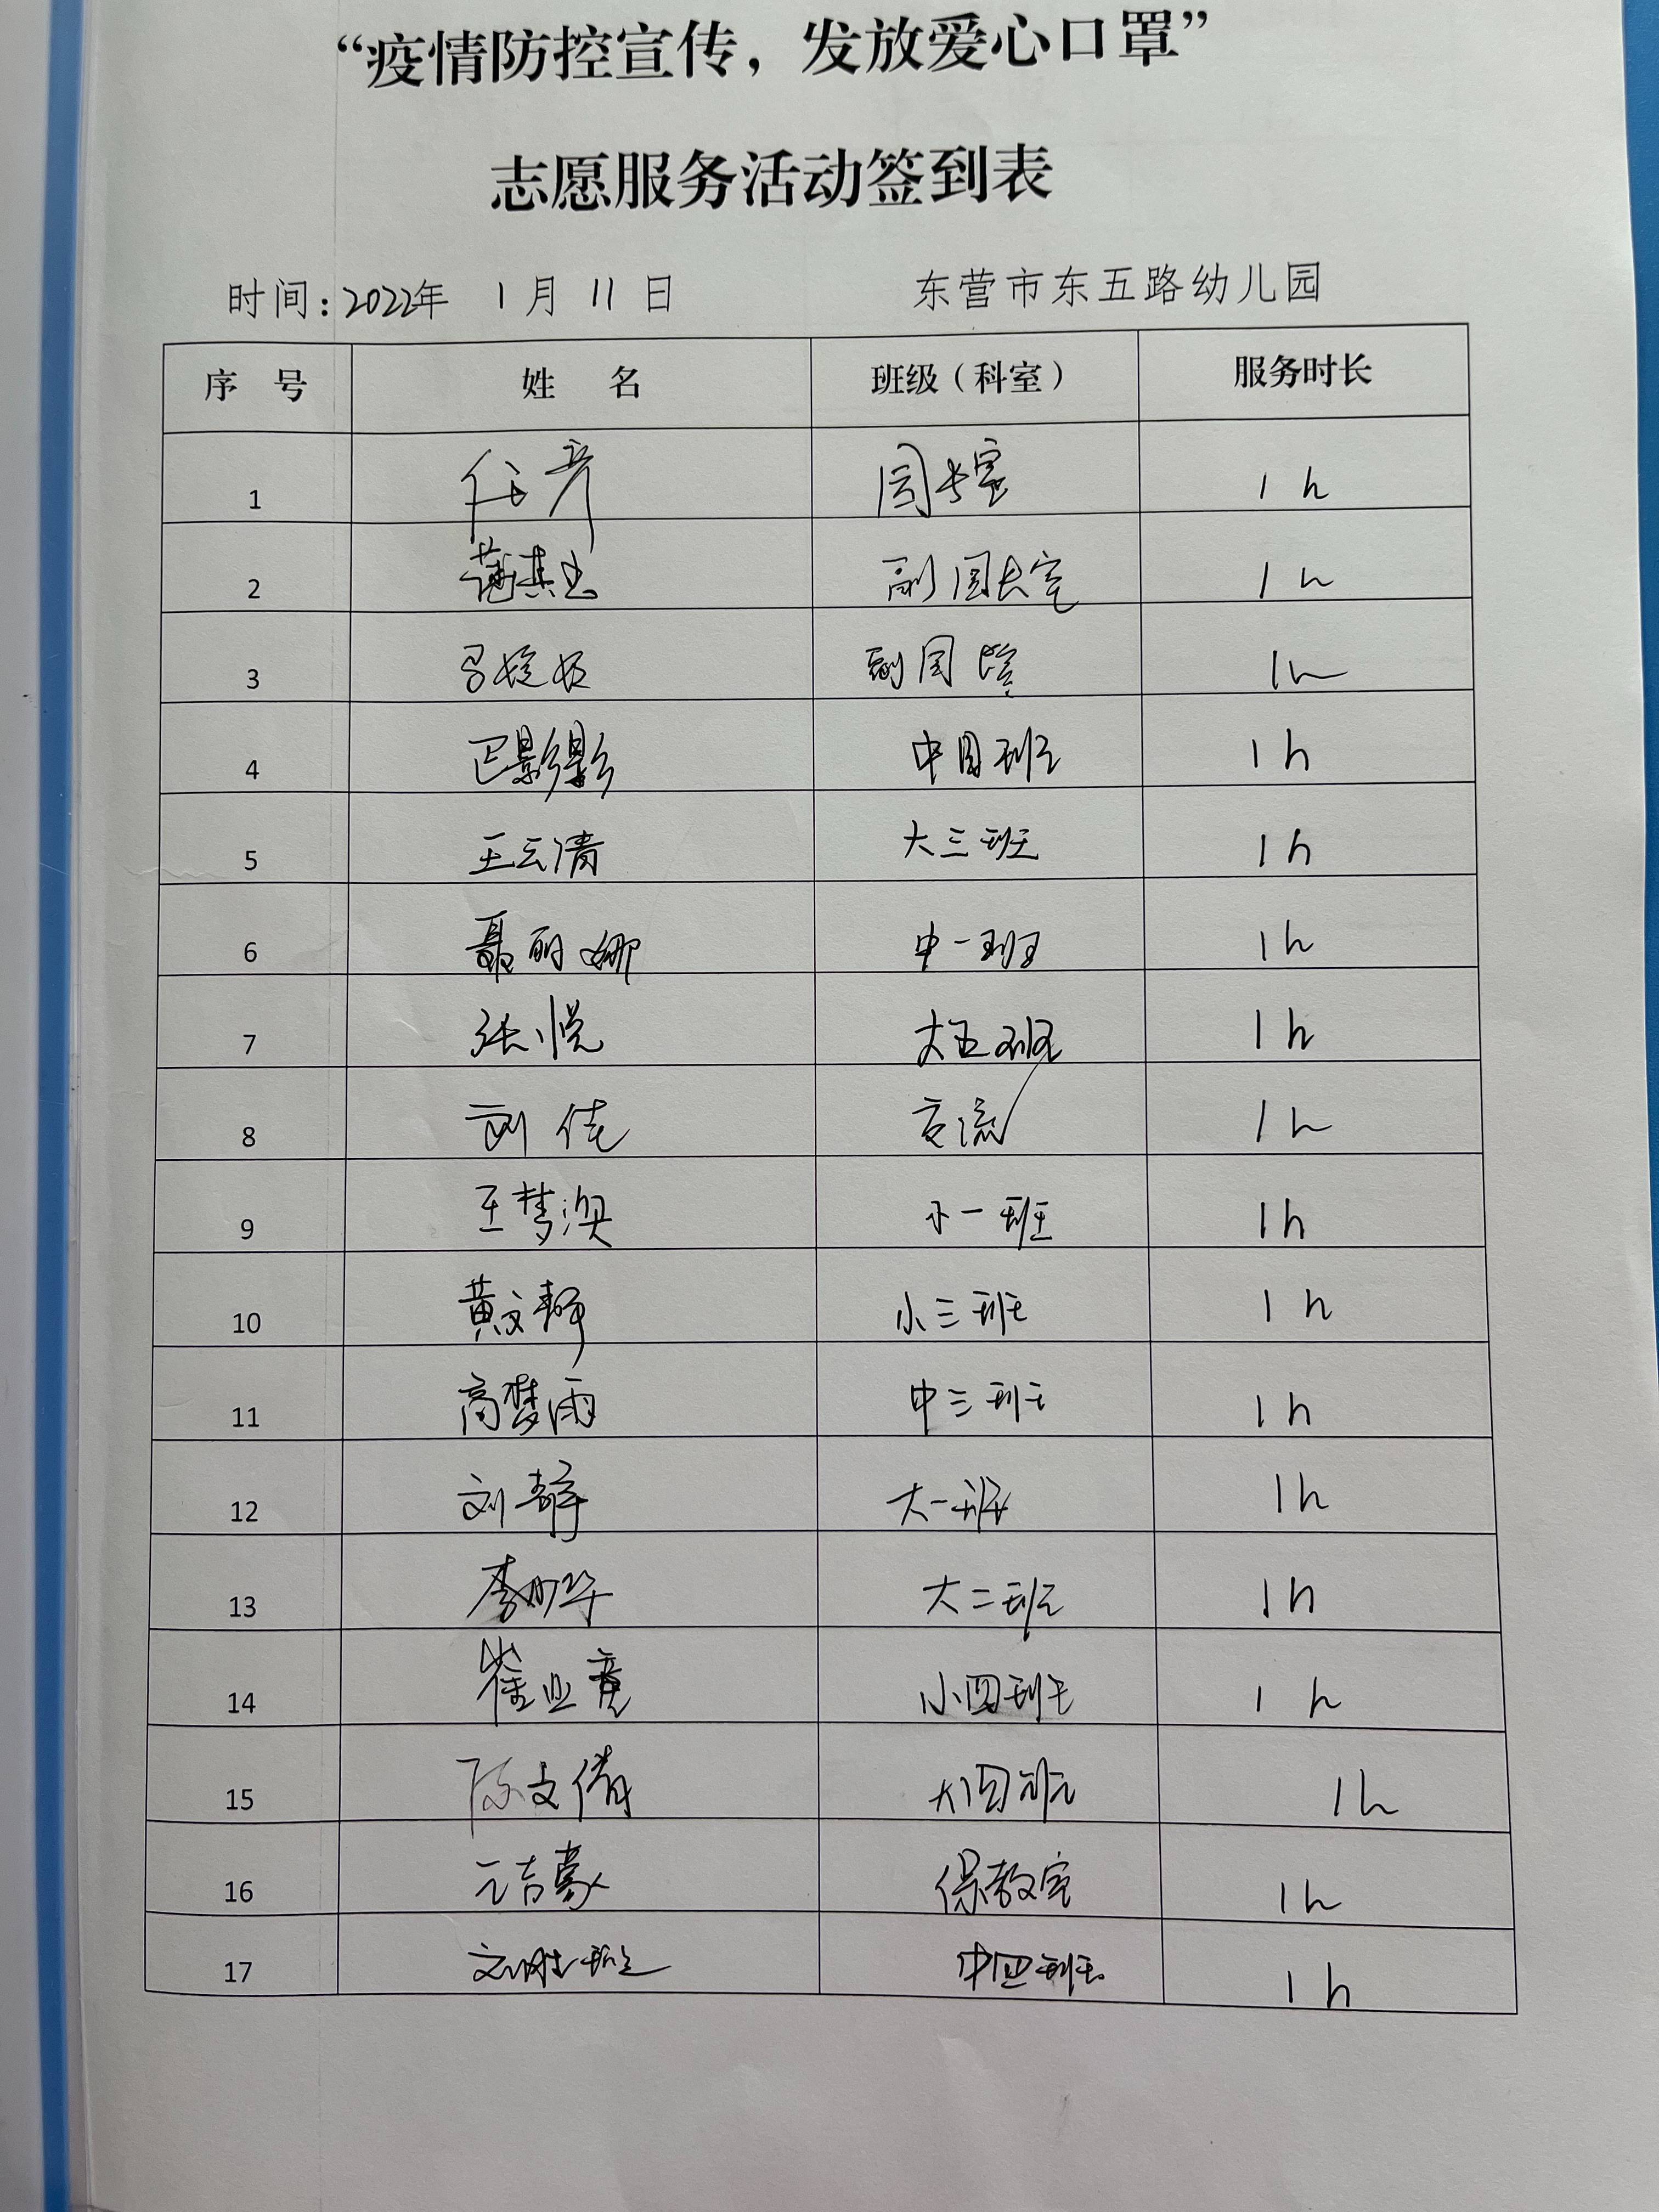 “疫情防控宣传，发放爱心口罩”
志愿服务活动签到表
时间：2022年 1月 11日 东营市东五路幼儿园
序 号 姓 名 班级（科室） 服务时长
1 任彦 园长室 1h
2 副园长室 1h
3 副园长室 1h
4 巴影影 中二班 1h
5 王云倩 大三班 1h
6 聂丽娜 中一班 1h
7 张悦 大五班 1h
8 刘佳 交流 1h
9 王梦溪 小一班 1h
10 黄文静 小三班 1h
11 高梦雨 中三班 1h
12 刘静 大一班 1h
13 李 大二班 1h
14 崔亚竟 小四班 1h
15 陈文倩 大四班 1h
16 保教室 1h
17 中四班 1h